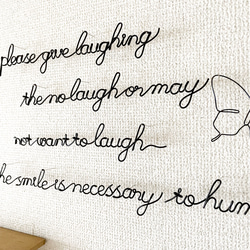 please give laughing
the no laugh or may
not want to laugh
he smile is necessary to hum